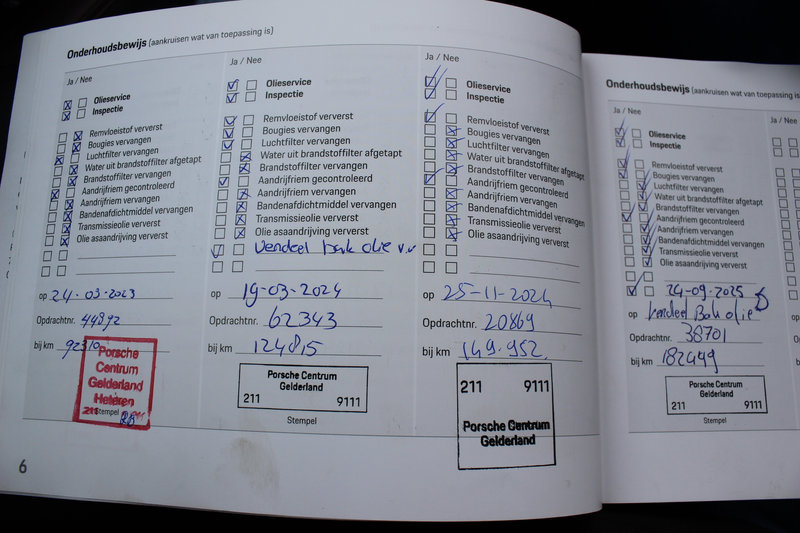 Onderhoudsbewijs (aankruisen wat van toepassing is)
Ja / Nee
Olieservice
Inspectie
Remvloeistof ververst
Bougies vervangen
Luchtfilter vervangen
Water uit brandstoffilter afgetapt
Brandstoffilter vervangen
Aandrijfriem gecontroleerd
Aandrijfriem vervangen
Bandenafdichtmiddel vervangen
Transmissieolie ververst
Olie asaandrijving ververst
op 24-03-2023
Opdrachtnr. 44892
bij km 92310
Porsche
Centrum
Gelderland
Heteren
211 9111
Stempel
6
Ja / Nee
Olieservice
Inspectie
Remvloeistof ververst
Bougies vervangen
Luchtfilter vervangen
Water uit brandstoffilter afgetapt
Brandstoffilter vervangen
Aandrijfriem gecontroleerd
Aandrijfriem vervangen
Bandenafdichtmiddel vervangen
Transmissieolie ververst
Olie asaandrijving ververst
Verdeel bak olie v.v
op 19-03-2024
Opdrachtnr. 62343
bij km 124815
Porsche Centrum
Gelderland
211 9111
Stempel
Ja / Nee
Olieservice
Inspectie
Remvloeistof ververst
Bougies vervangen
Luchtfilter vervangen
Water uit brandstoffilter afgetapt
Brandstoffilter vervangen
Aandrijfriem gecontroleerd
Aandrijfriem vervangen
Bandenafdichtmiddel vervangen
Transmissieolie ververst
Olie asaandrijving ververst
op 25-11-2024
Opdrachtnr. 20869
bij km 149.952.
211 9111
Porsche Centrum
Gelderland
Onderhoudsbewijs (aankruisen wat van toepassing is)
Ja / Nee
Olieservice
Inspectie
Remvloeistof ververst
Bougies vervangen
Luchtfilter vervangen
Water uit brandstoffilter afgetapt
Brandstoffilter vervangen
Aandrijfriem gecontroleerd
Aandrijfriem vervangen
Bandenafdichtmiddel vervangen
Transmissieolie ververst
Olie asaandrijving ververst
24-09-2025
op Verdeel Bak olie
Opdrachtnr. 38701
bij km 182449
Porsche Centrum
Gelderland
211 9111
Stempel
Ja / Nee